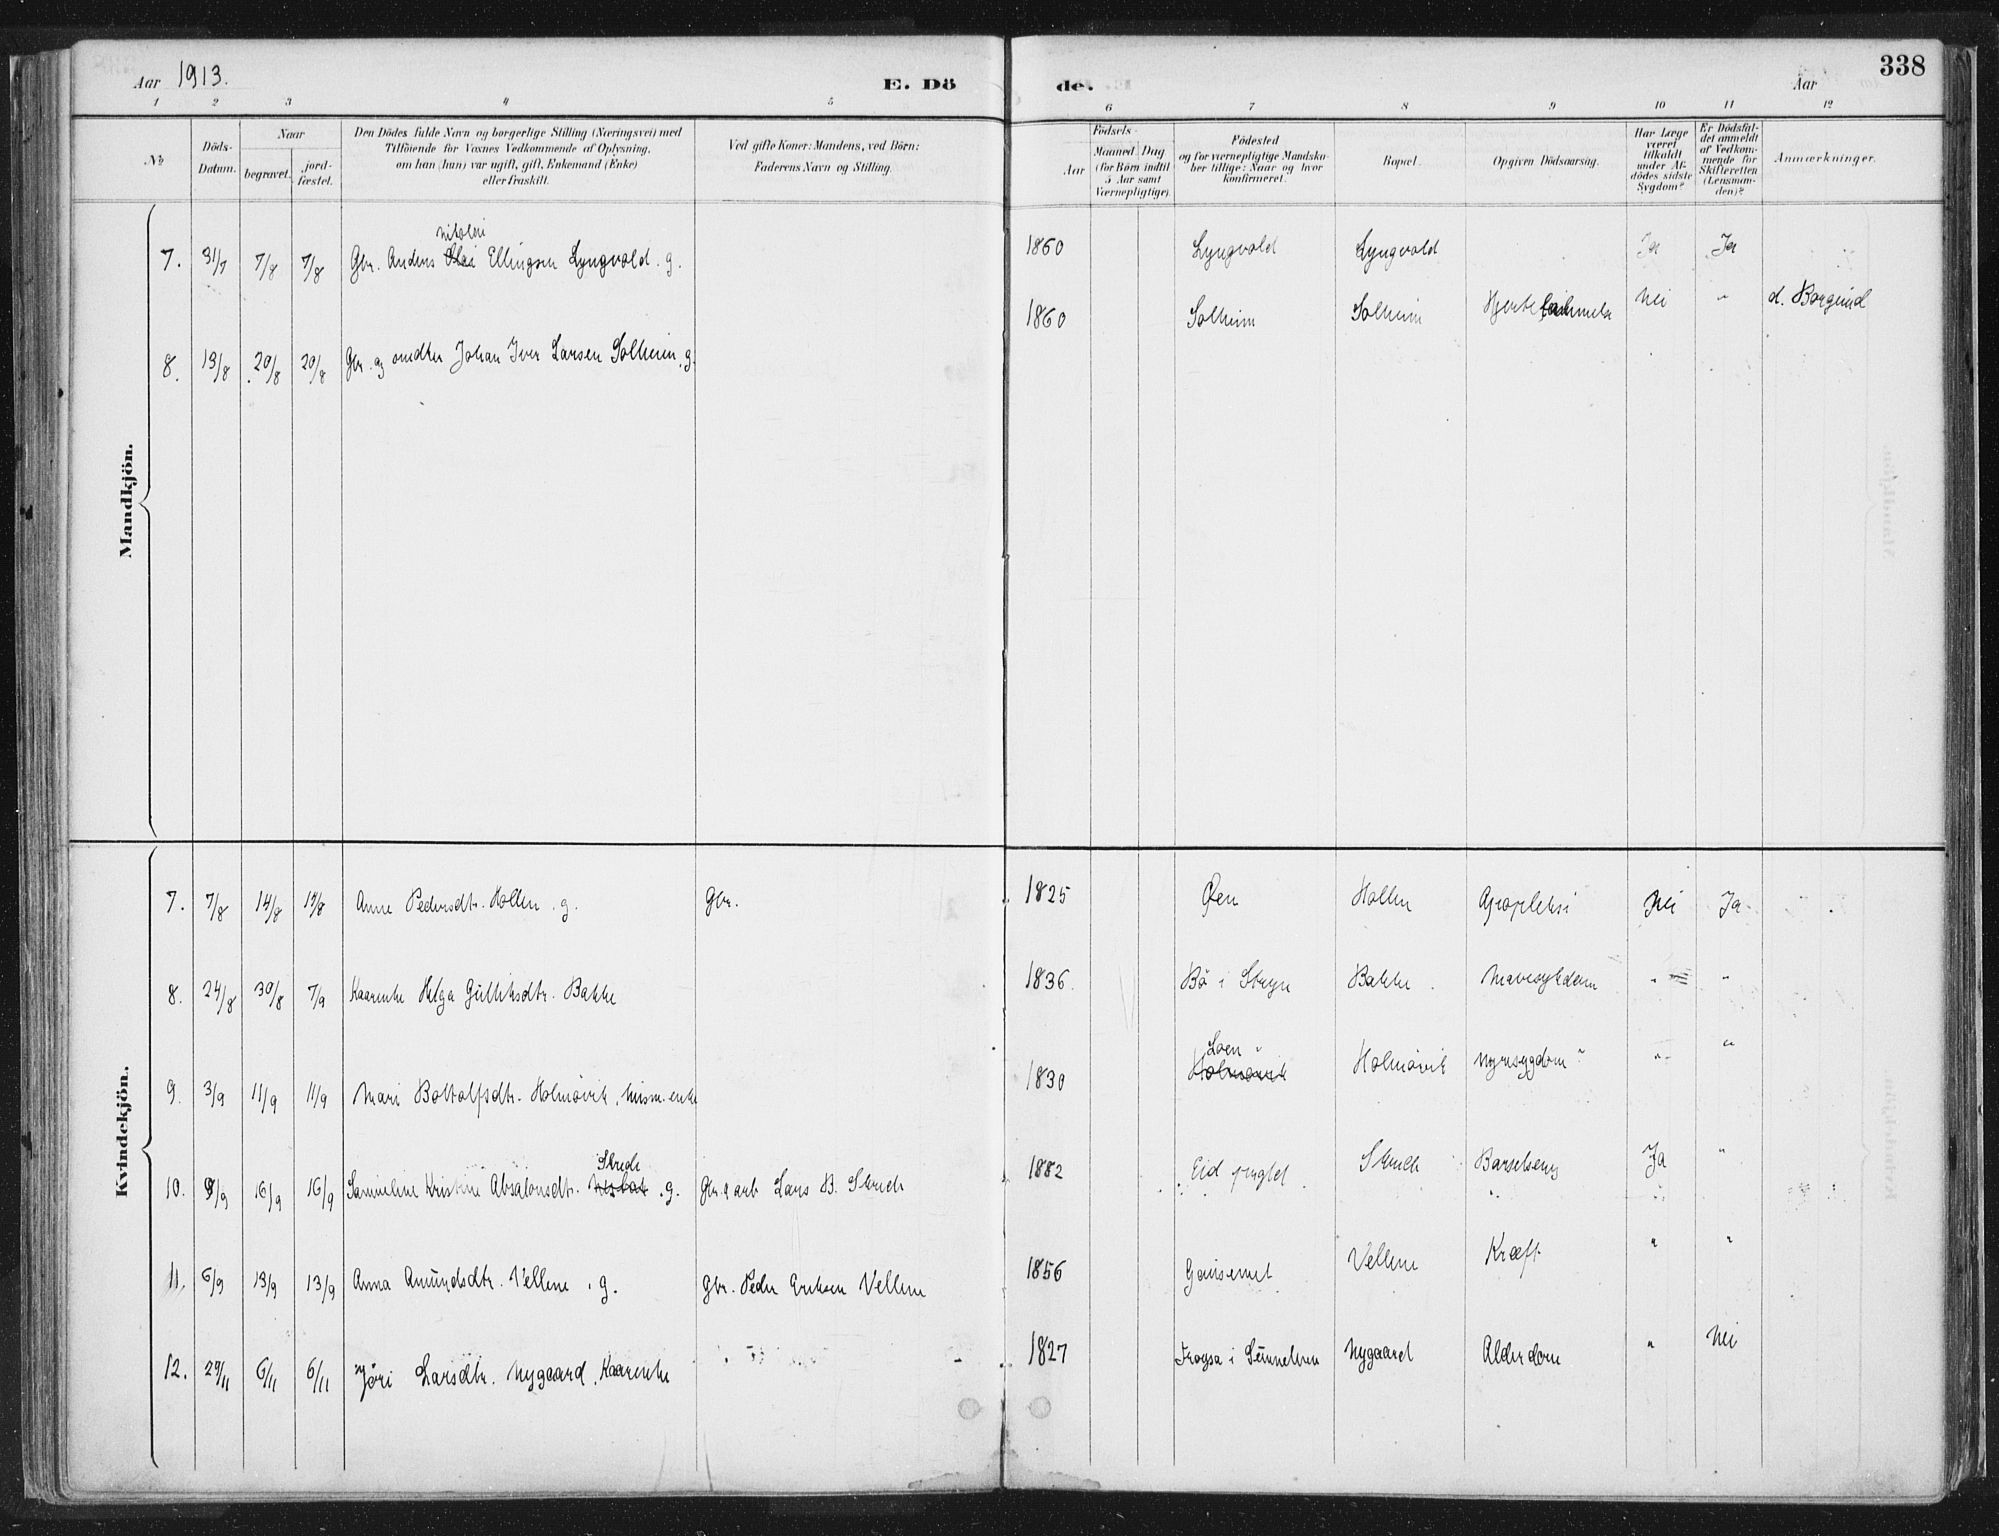 Aar 1913.
E. Dö
de.
Aar
338
1 2 3 4 5 6 7 8 9 10 11 12
No.
Döds-Datum.
Naar
begravet.
jord-fæstet.
Den Dödes fulde Navn og borgerlige Stilling (Næringsvei) med
Tilföiende for Voxnes Vedkommende af Oplysning,
om han (hun) var ugift, gift, Enkemand (Enke)
eller fraskilt.
Ved gifte Koner: Mandens, ved Börn:
Faderens Navn og Stilling.
Födsels-
Aar
Maaned Dag
(for Børn indtil
5 Aar samt
Værnepligtige).
Födested
og for værnepligtige Mandska-
ber tillige: Naar og hvor
konfirmeret.
Bopæl.
Opgiven Dödsaarsag.
Har Læge
været
tilkaldt
under Af-
dödes sidste
Sygdom?
Er Dödsfal-
det anmeldt
af Vedkom-
mende for
Skifteretten
(Lensman-
den)?
Anmærkninger.
Mandkjön.
Nikolai
7. 31/7 7/8 7/8 Gbr. Anders Ellingsen Lyngvold. g. 1860 Lyngvold Lyngvold Ja Ja
8. 13/8 20/8 20/8 Gbr. og Johan Iver Larsen Solheim. g. 1860 Solheim Solheim Nei " d. Borgund
Kvindekjön.
7. 7/8 14/8 14/8 Anne Pedersdtr. Hollen. g. Gbr. 1825 Øen Hollen Apopleksi Nei Ja
8. 24/8 30/8 7/9 Kaarenke Helga Gulliksdtr. Bakke 1836. Bö i Stryn Bakke. Mavesykdom " "
Loen
9. 3/9 11/9 11/9 Mari Botolfsdtr. Holmövik, husm. enke 1830 Holmövik Holmövik Nyresygdom " "
Skrede
10. 9/9 16/9 16/9 Sammeline Kristine Absalonsdtr. g. Gbr. & arb Lars B. Skrede 1882 Eid prgjld Skrede Barselseng Ja "
11. 6/9 13/9 13/9 Anna Amundsdtr. Vellene. g. Gbr. Peder Eriksen Vellene 1856 Gausemel Vellene Kræft " "
12. 29/11 6/11 6/11 Jöri Larsdtr. Nygaard. Kaarenke 1827 i Sunnelven Nygaard Alderdom " Nei